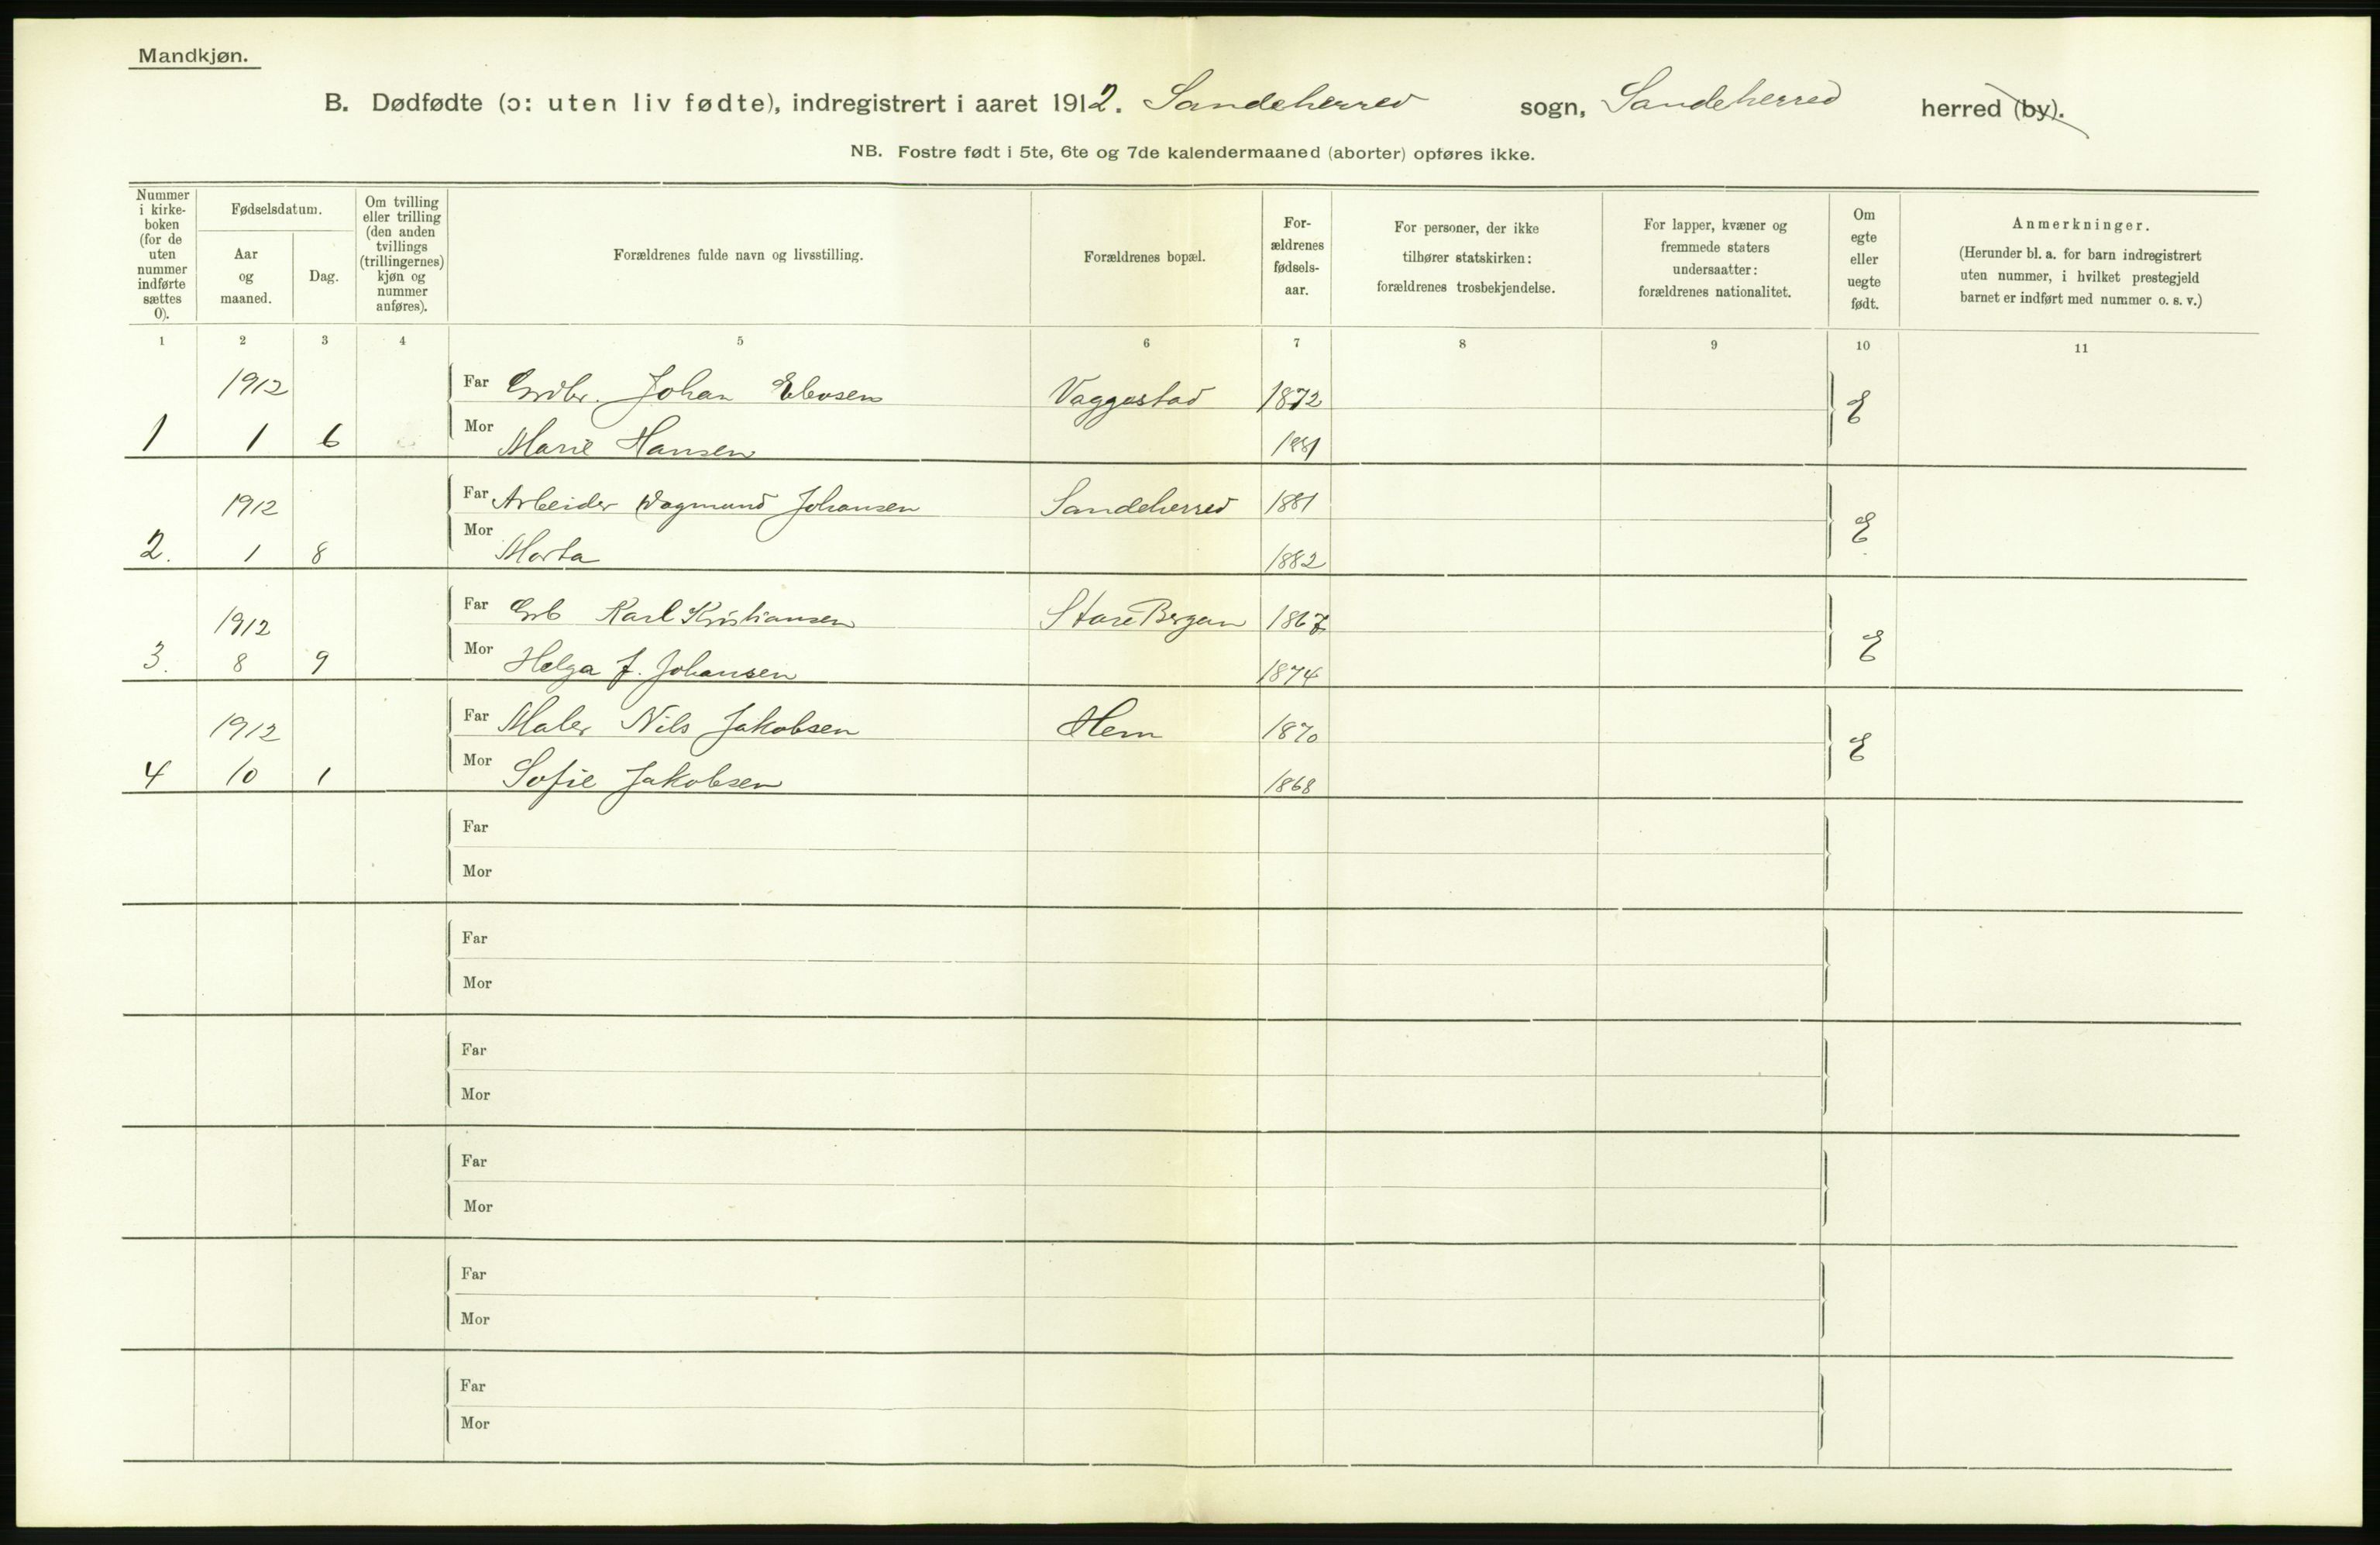 Mandkjøn.
B. Dødfødte (ɔ: uten liv fødte), indregistrert i aaret 1912. Sandeherred sogn, Sandeherred herred (by).
NB. Fostre født i 5te, 6te og 7de kalendermaaned (aborter) opføres ikke.
Nummer i kirke-boken (for de uten nummer indførte sættes 0).
Fødselsdatum.
Aar og maaned.
Dag.
Om tvilling eller trilling (den anden tvillings (trillingernes) kjøn og nummer anføres).
Forældrenes fulde navn og livsstilling.
Forældrenes bopæl.
For-ældrenes fødsels-aar.
For personer, der ikke tilhører statskirken: forældrenes trosbekjendelse.
For lapper, kvæner og fremmede staters undersaatter: forældrenes nationalitet.
Om egte eller uegte født.
Anmerkninger.
(Herunder bl. a. for barn indregistrert uten nummer, i hvilket prestegjeld barnet er indført med nummer o. s. v.)
1 2 3 4 5 6 7 8 9 10 11
1912 Far Grdbr. Johan Vaggestad 1872 E
1 1 6 Mor Marie Hansen 1881
1912 Far Arbeider Dagmund Johansen Sandeherred 1881 E
2. 1 8 Mor Marta 1882
1912 Far Karl Kristiansen Store Bergan 1867 E
3. 8 9 Mor Helga J. Johansen 1874
1912 Far Maler Nils Jakobsen Hem 1870 E
4 10 1 Mor Sofie Jakobsen 1868
Far
Mor
Far
Mor
Far
Mor
Far
Mor
Far
Mor
Far
Mor